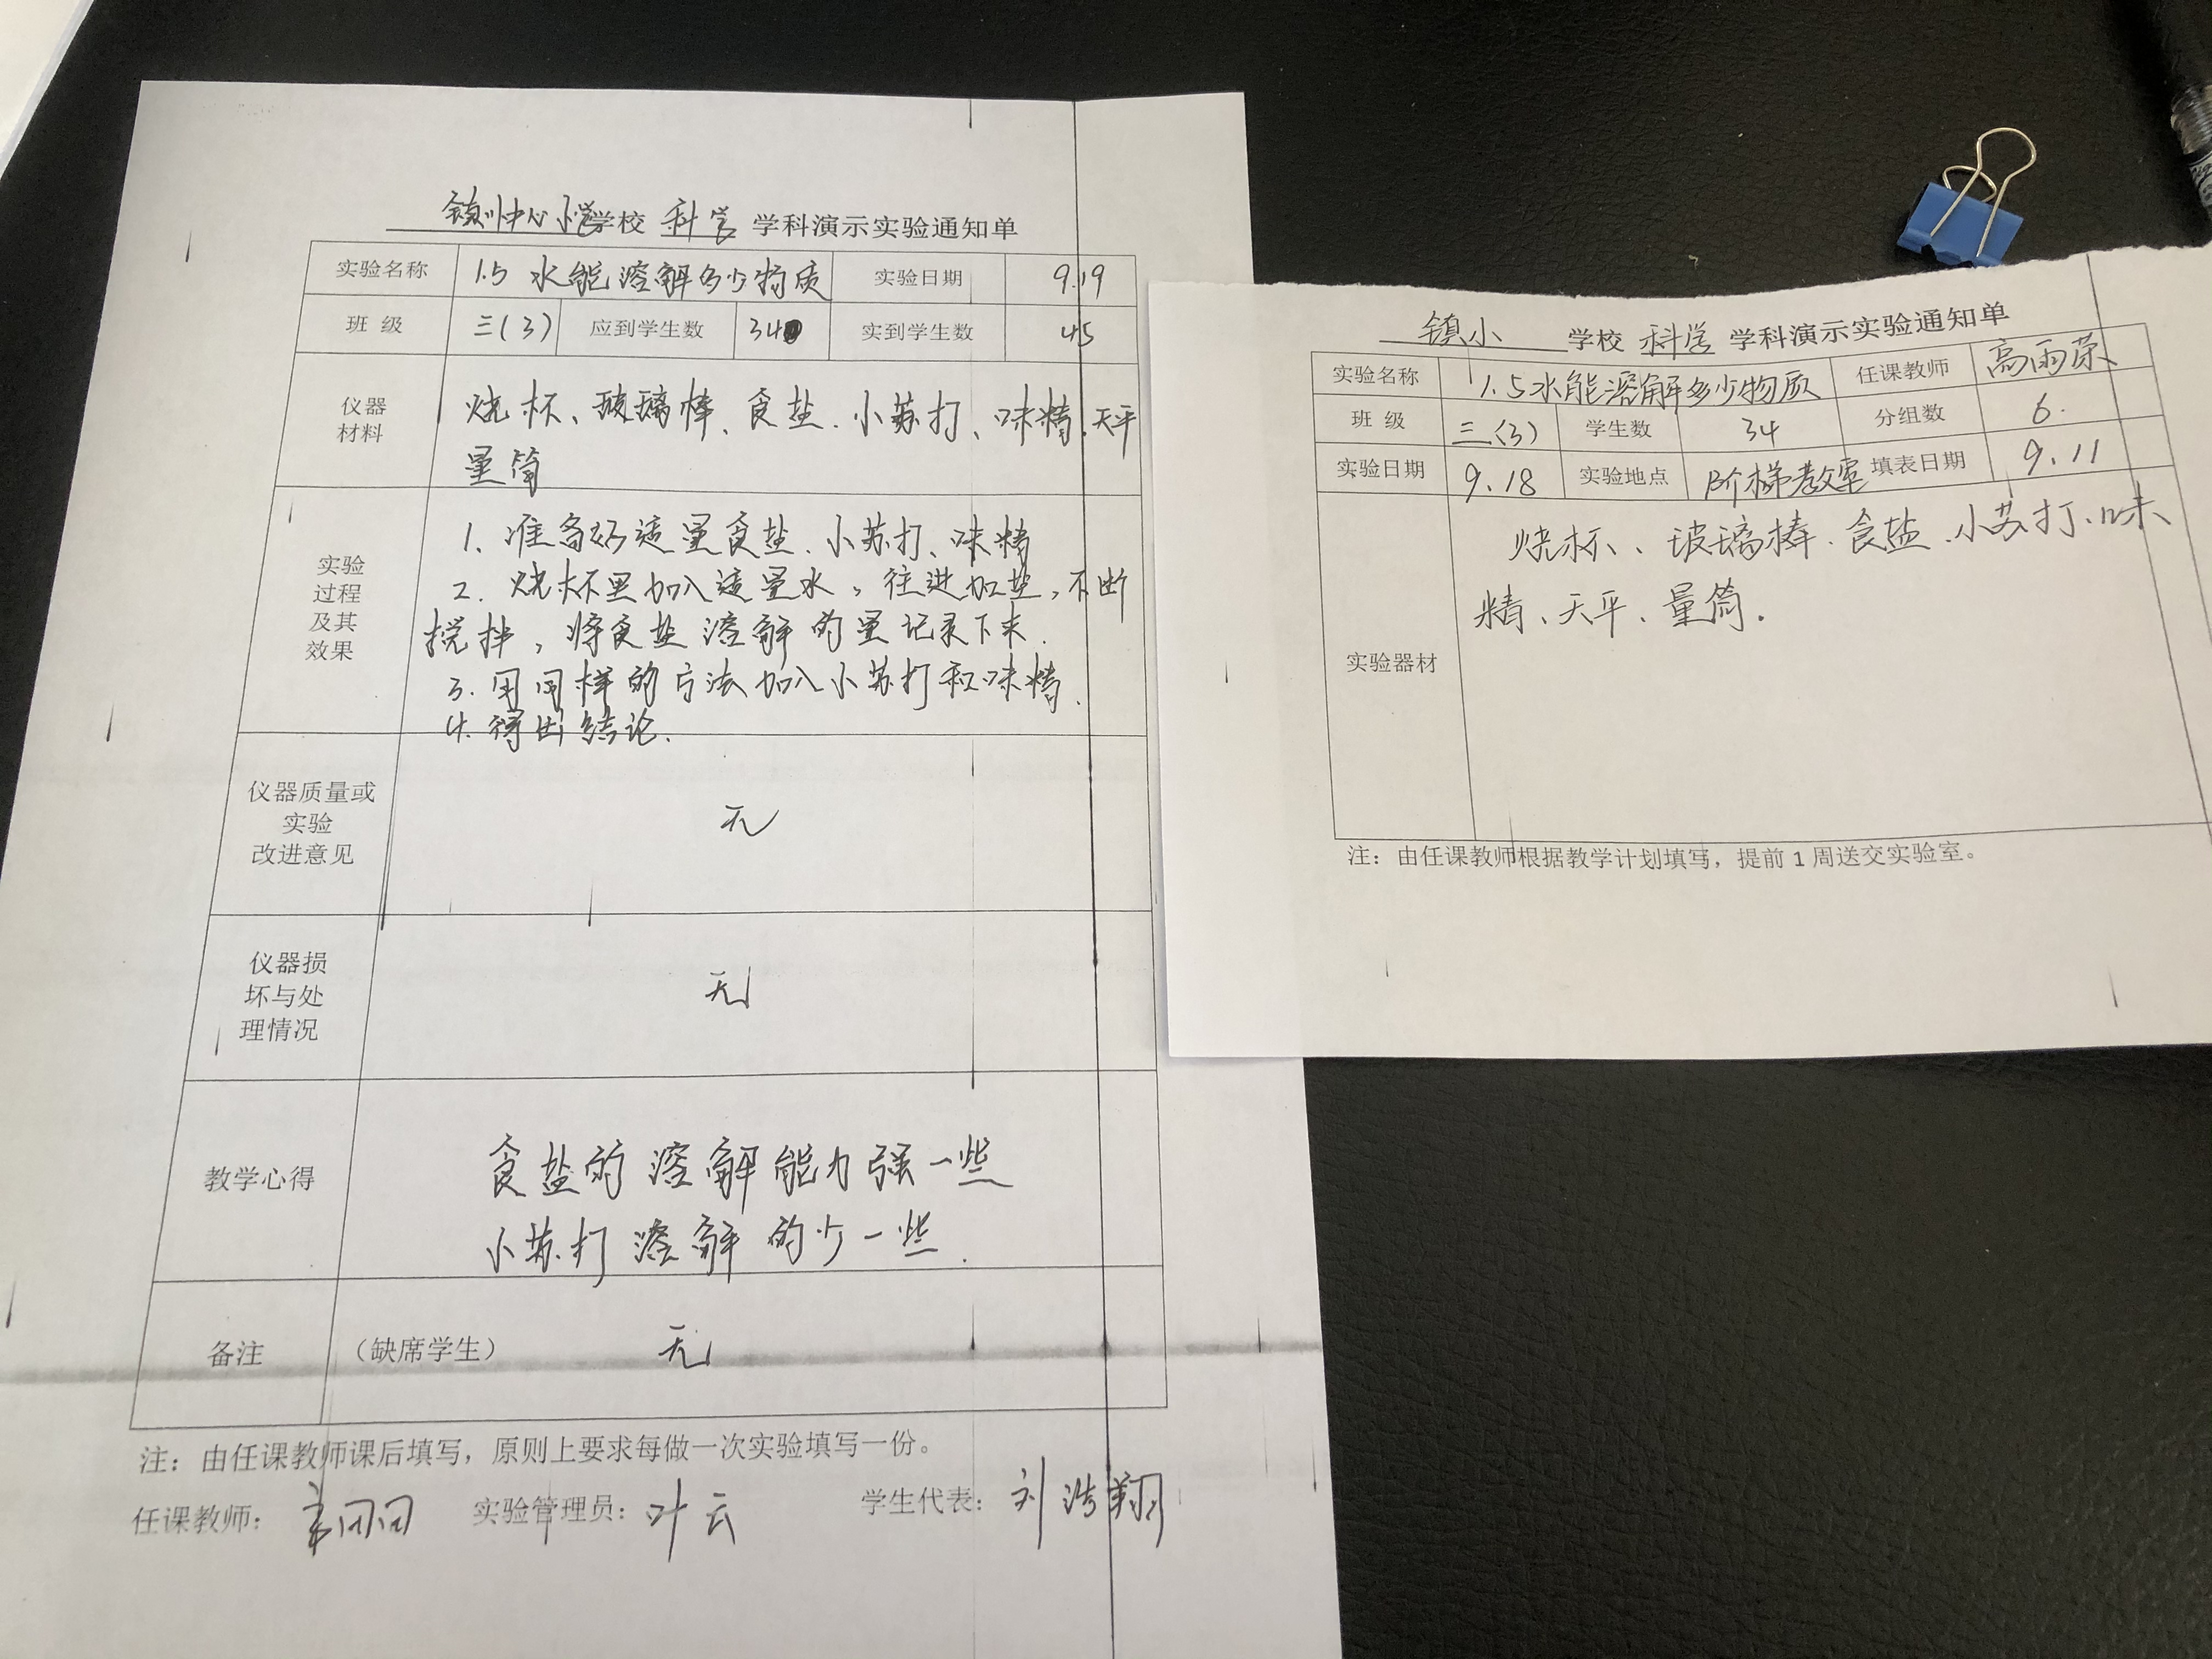 镇川中心小学学校 科学 学科演示实验通知单
实验名称 1.5 水能溶解多少物质 实验日期 9.19
班 级 三(3) 应到学生数 34 实到学生数 45
仪器
材料
烧杯、玻璃棒、食盐、小苏打、味精、天平
量筒
实验
过程
及其
效果
1. 准备好适量食盐、小苏打、味精
2. 烧杯里加入适量水，往进加盐，不断
搅拌，将食盐溶解的量记录下来.
3. 用同样的方法加入小苏打和味精.
4. 得出结论.
仪器质量或
实验
改进意见
无
仪器损
坏与处
理情况
无
教学心得
食盐的溶解能力强一些
小苏打溶解的少一些.
备注 （缺席学生） 无
注：由任课教师课后填写，原则上要求每做一次实验填写一份。
任课教师： 实验管理员：叶云 学生代表：刘浩翔
镇小 学校 科学 学科演示实验通知单
实验名称 1.5水能溶解多少物质 任课教师 高雨荣
班 级 三(3) 学生数 34 分组数 6.
实验日期 9.18 实验地点 阶梯教室 填表日期 9.11
实验器材
烧杯、玻璃棒、食盐、小苏打、味
精、天平、量筒.
注：由任课教师根据教学计划填写，提前 1 周送交实验室。